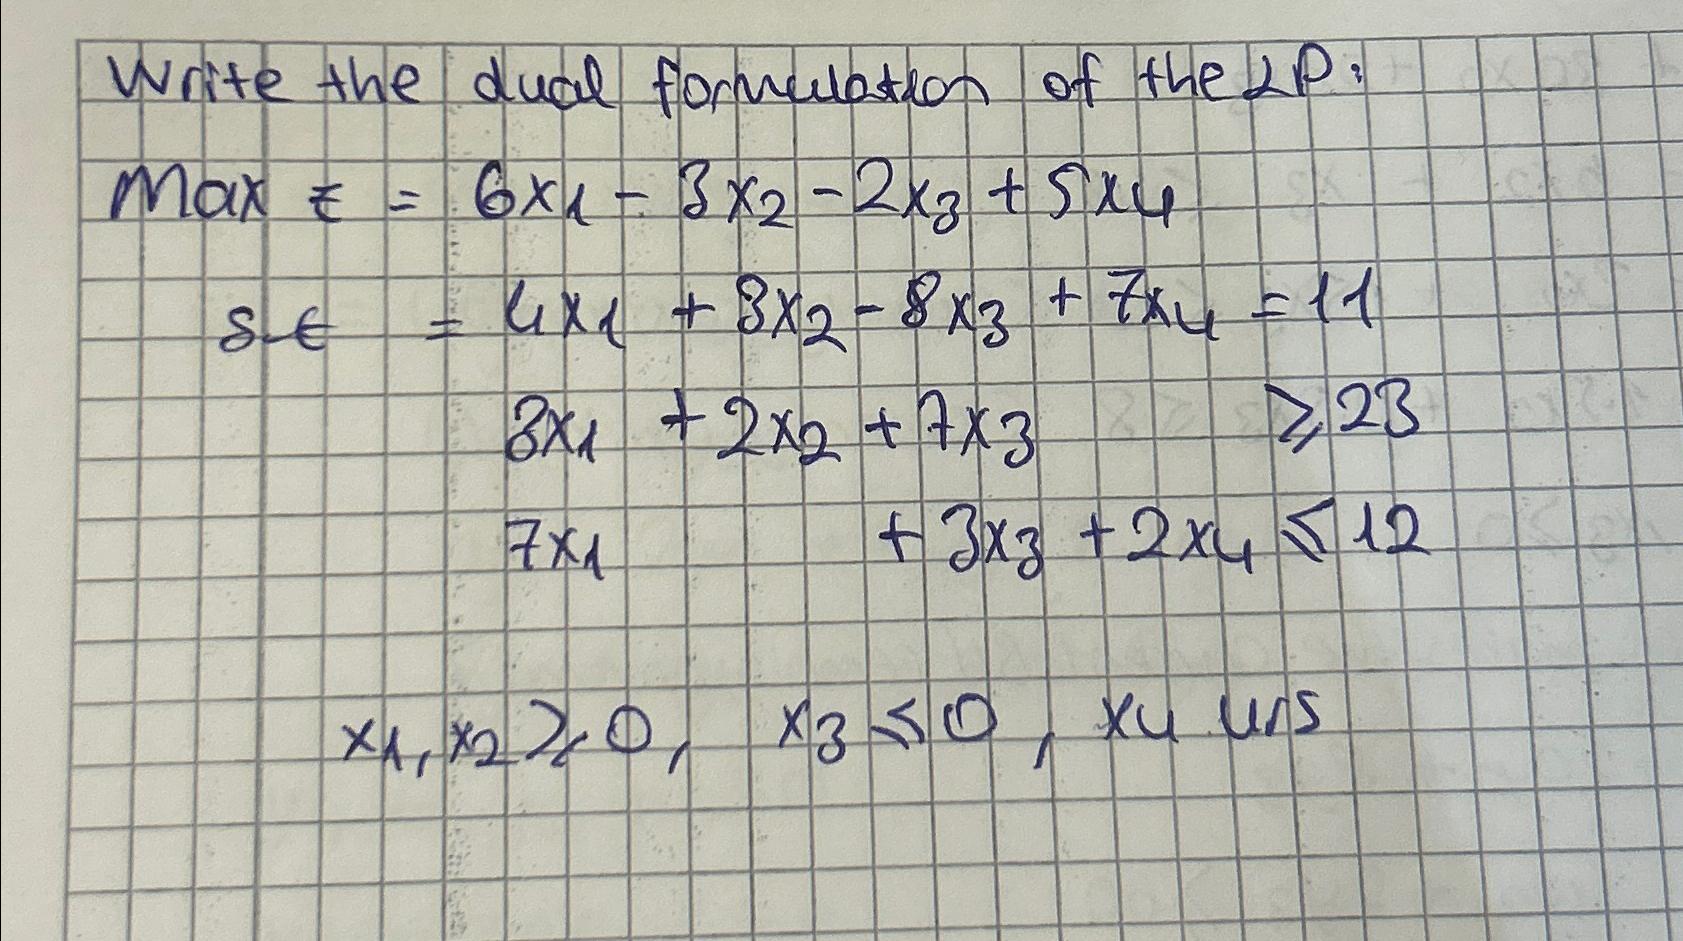 Write the dual formulation of the LP:
Max z = 6x1 - 3x2 - 2x3 + 5x4
s.t = 4x1 + 3x2 - 8x3 + 7x4 = 11
3x1 + 2x2 + 7x3 ≥ 23
7x1 + 3x3 + 2x4 ≤ 12
x1, x2 ≥ 0, x3 ≤ 0, x4 urs